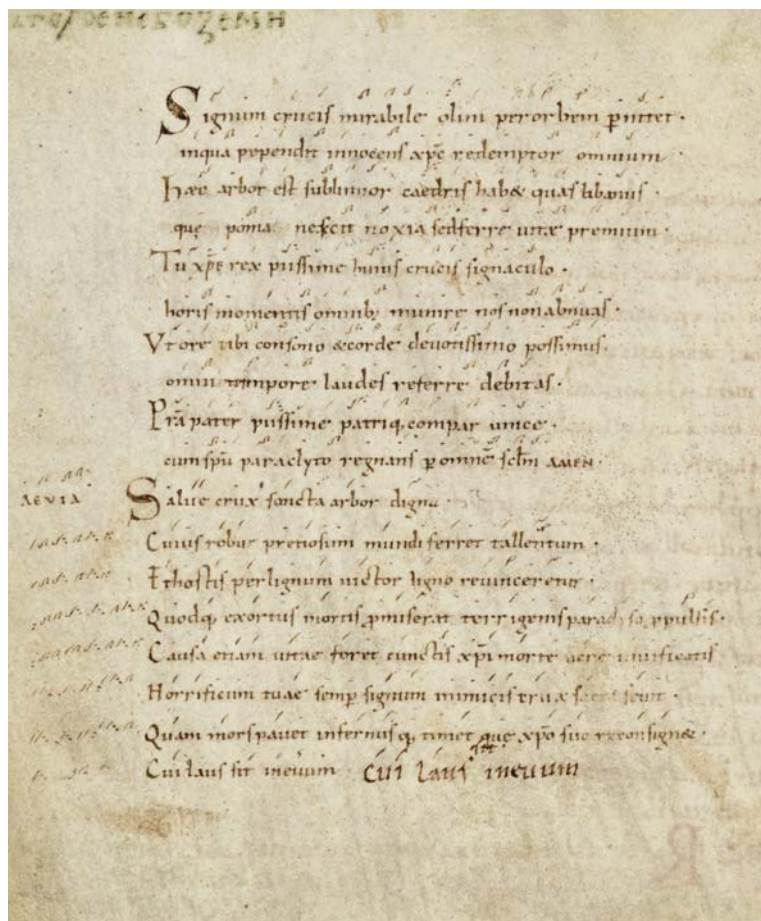 Signum crucis mirabile olim per orbem p̄nitet ·
in qua pependit innocens xp̄c redemptor omnium
Haec arbor est sublimior caedris hab& quas libanus
quę poma nescit noxia sed ferre uitæ premium ·
Tu xp̄e rex piissime huius crucis signaculo ·
horis momentis omnib; munire nos non abnuas ·
Vt ore tibi consono & corde deuotissimo possimus
omni tempore laudes referre debitas ·
P̄ra pater piissime patriq; compar unice ·
cum sp̄u paraclyto regnans p̱ omnē sc̄lm AMEN ·
AEVIA Salue crux sancta arbor digna ·
Cuius robur pretiosum mundi ferret tallentum ·
Et hostis per lignum uictor ligno reuinceretur ·
Quodq; exortus mortis p̱miserat terrigenis paradyso
Causa etiam uitae foret cunctis xp̄i morte uiuificatis
Horrificum tuae semp̱ signum inimicis crux
Quam mors pauet infernusq; timet quę xp̄o suo reconsign&
Cui laus sit in euum cui laus sit in euum